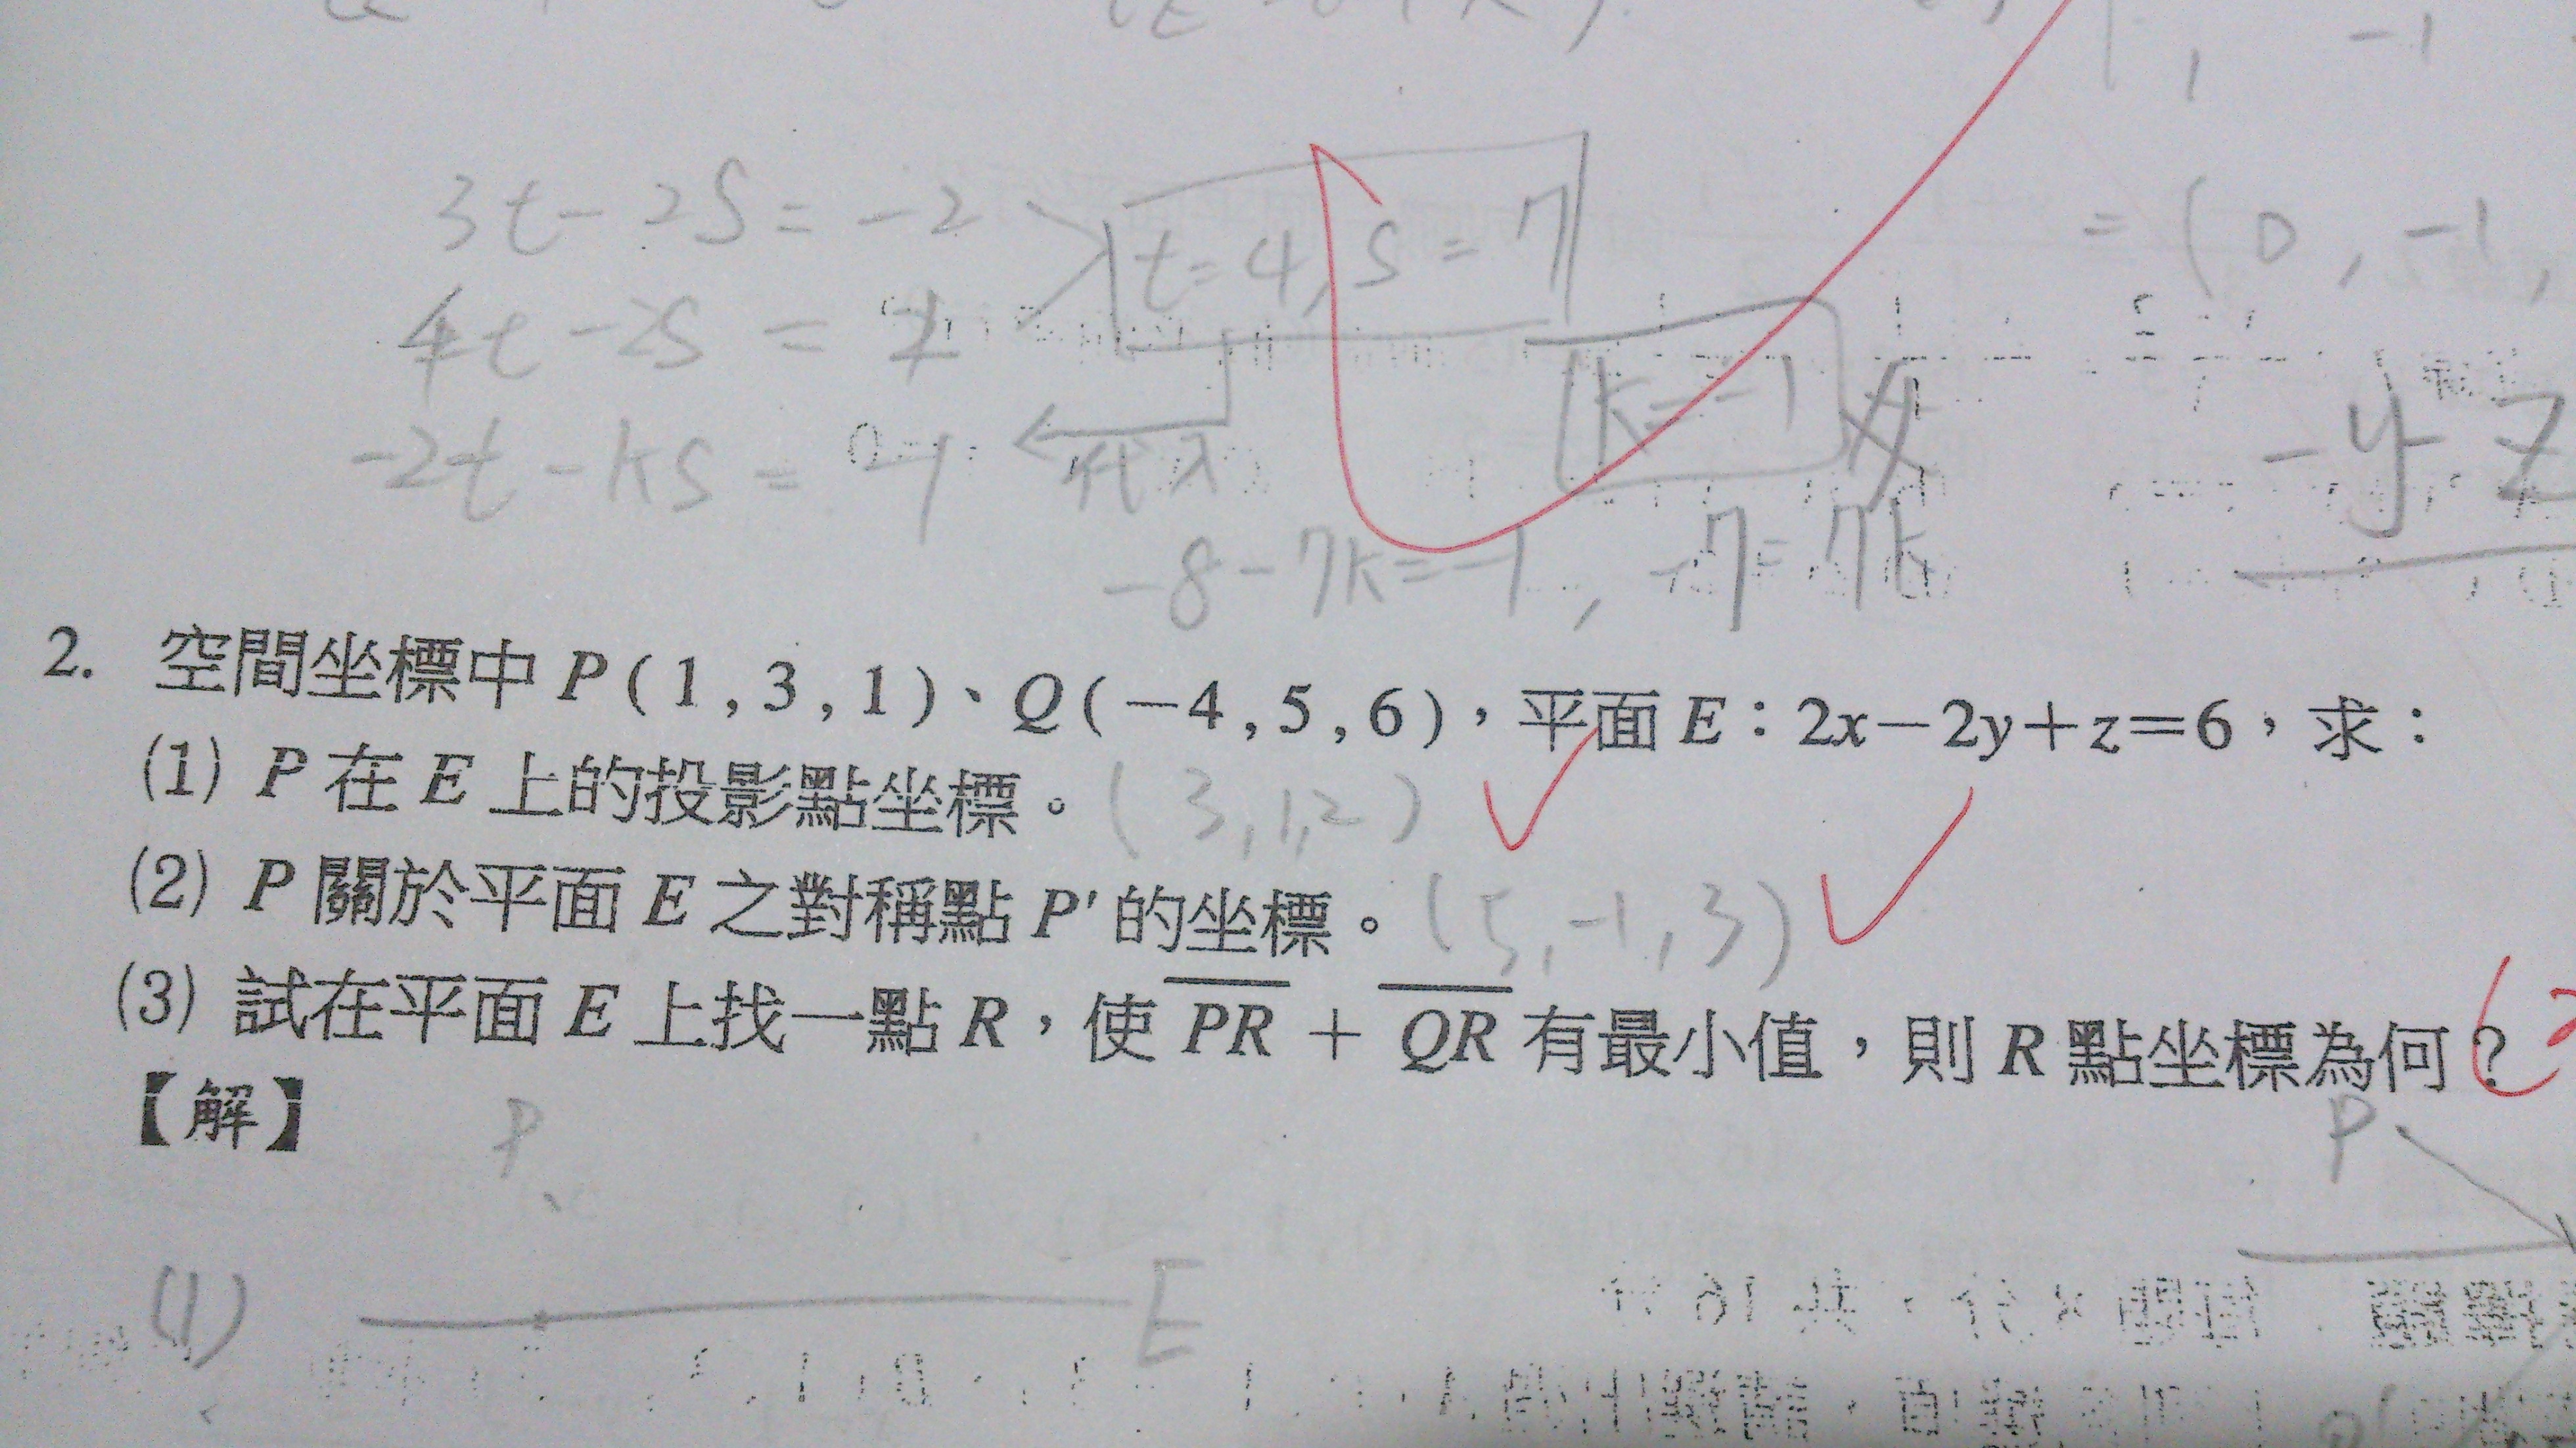 -1
3t-2S=-2
t=4,S=7
=(0,-1,
4t-2S=2
k=-1
-2t-kS=-1
代入
-y z
-8-7k=-1, -7=7k
2. 空間坐標中 P(1,3,1)、Q(-4,5,6),平面 E:2x-2y+z=6,求:
(1) P 在 E 上的投影點坐標。(3,1,2)
(2) P 關於平面 E 之對稱點 P' 的坐標。(5,-1,3)
(3) 試在平面 E 上找一點 R,使 PR + QR 有最小值,則 R 點坐標為何?
【解】
P
P
(1)
E